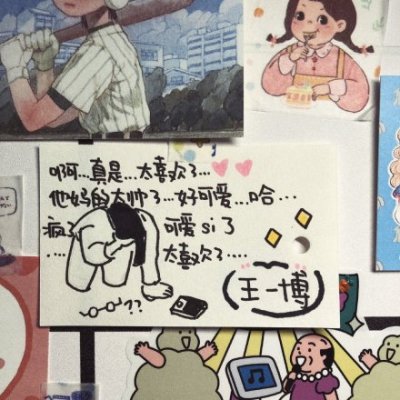 啊...真是...太喜欢了...
他妈的太帅了...好可爱...哈...
疯了 可爱si了
..... 太喜欢了.....
(王一博)
??